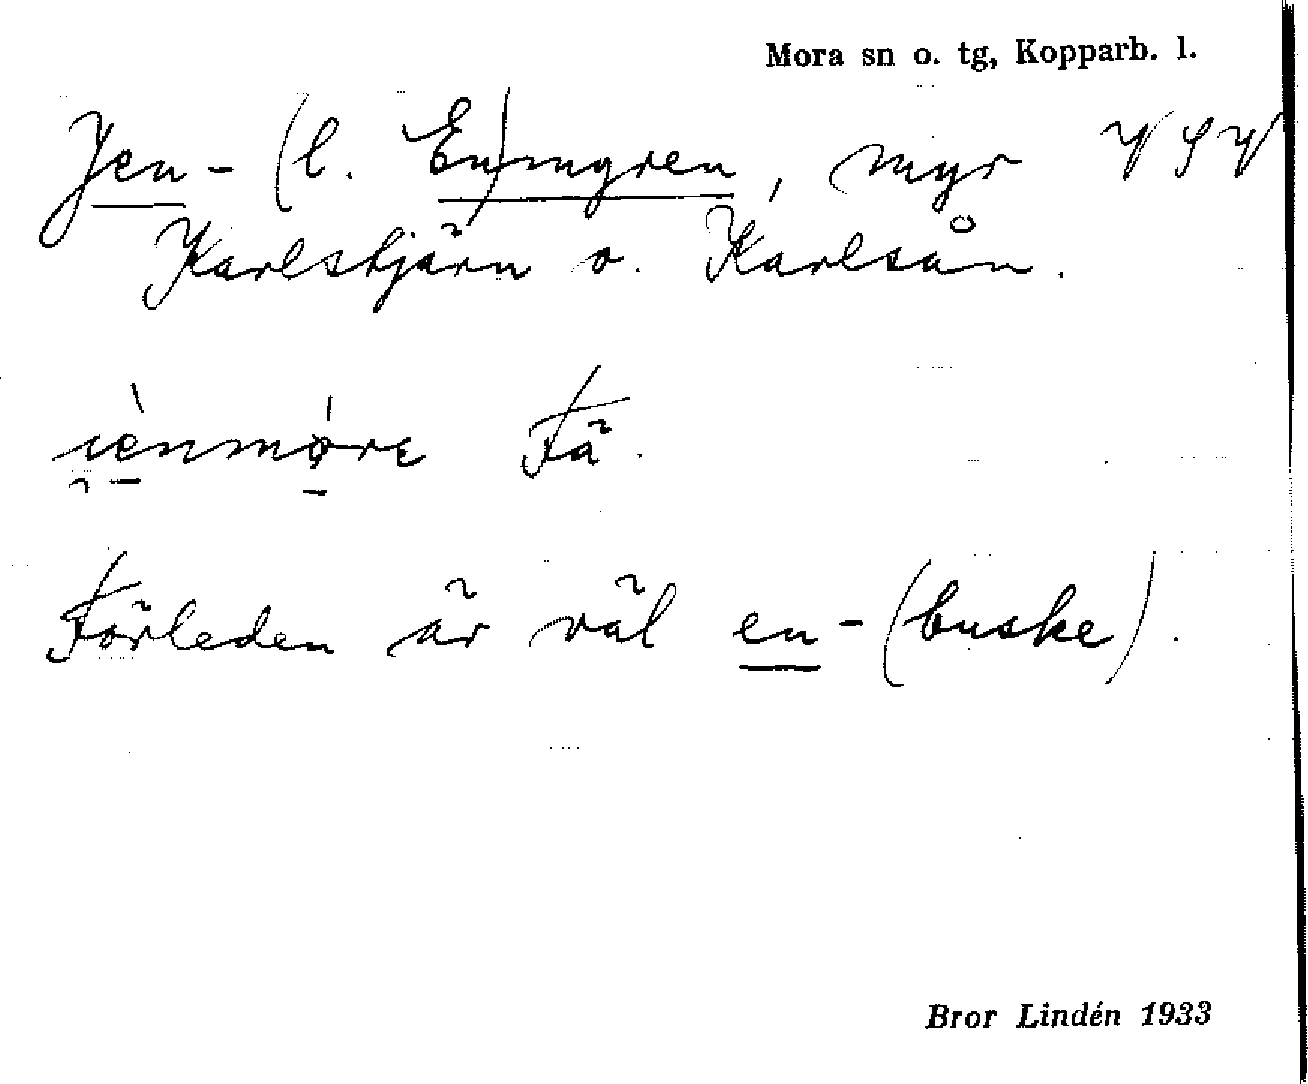 Mora sn o. tg, Kopparb. l.
Jen- (l. En)myren, myr VSV
Karlstjärn o. Karlsån.
i̯èn̠mø̠re Fä.
Förleden är väl en- (buske).
Bror Lindén 1933